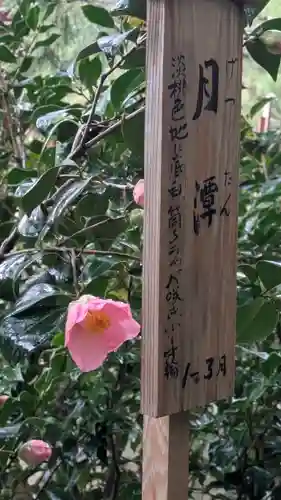 月潭
げつたん
淡桃色地に底白 筒~ラッパ咲き 小~中輪
1~3月